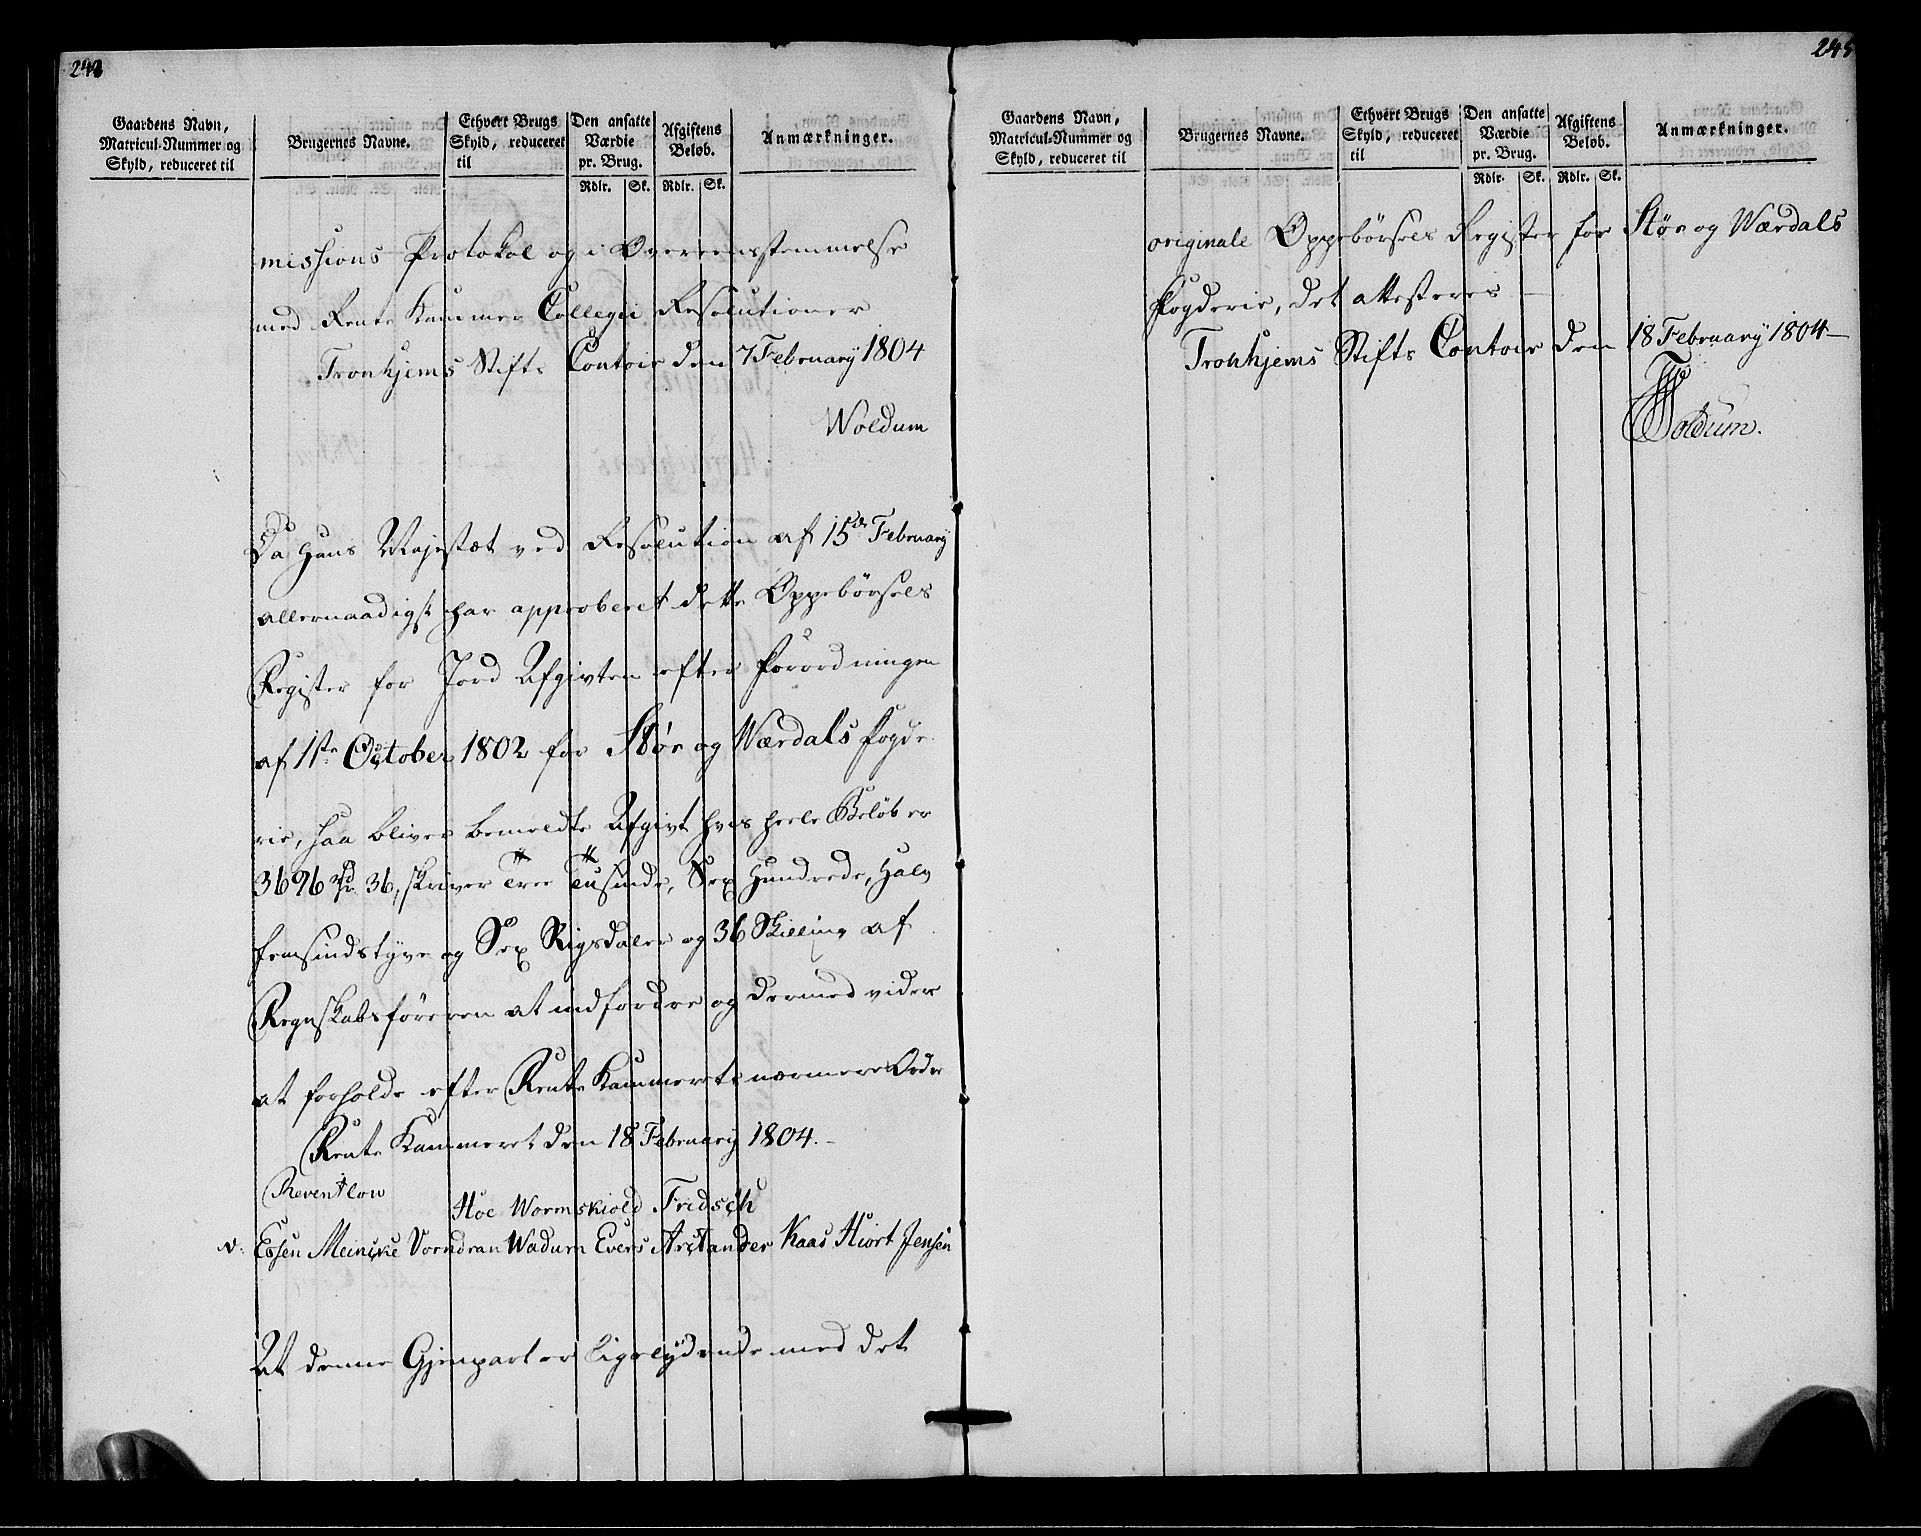 244
Gaardens Navn,
Matricul-Nummer og
Skyld, reduceret til
Brugernes Navne.
Ethvert Brugs
Skyld, reduceret
til
Den ansatte
Værdie
pr. Brug.
Rdlr. Sk.
Afgiftens
Beløb.
Rdlr. Sk.
Anmærkninger.
missions Protokol og i Overeensstemmelse
med Rente Kammer Collegii Resolutioner
Tronhjems Stifts Contoir den 7 February 1804
Woldum
Da Hans Majestæt ved Resolution af 15de February
allernaadigst har approberet dette Oppebørsels
Register for Jord Afgivten efter Forordningen
af 1ste October 1802 for Stør og Værdals Fogde
rie, saa bliver bemeldte Afgivt hvis heele Beløb er
3696 rd 36, skriver Tree Tusinde, Sex Hundrede, Halv
femsindstyve og Sex Rigsdaler og 36 Skilling af
Regnskabsføreren at indfordre og dermed videre
at forholde efter Rente Kammerets nærmere Ordre
Rente Kammeret den 18 February 1804.-
Reventlow
Hoe Wormskiold Fridsch
v: Essen Meincke Vorndran Wadum Evers Arctander Kaas Hiort Jensen
At denne Gjenpart er Ligelydende med det
245
Gaardens Navn,
Matricul-Nummer og
Skyld, reduceret til
Brugernes Navne.
Ethvert Brugs
Skyld, reduceret
til
Den ansatte
Værdie
pr. Brug.
Rdlr. Sk.
Afgiftens
Beløb.
Rdlr. Sk.
Anmærkninger.
originale Oppebörsels Register for Stør og Værdals
Fogderie, det attesteres -
Tronhjems Stifts Contoir den 18 February 1804-
Woldum.